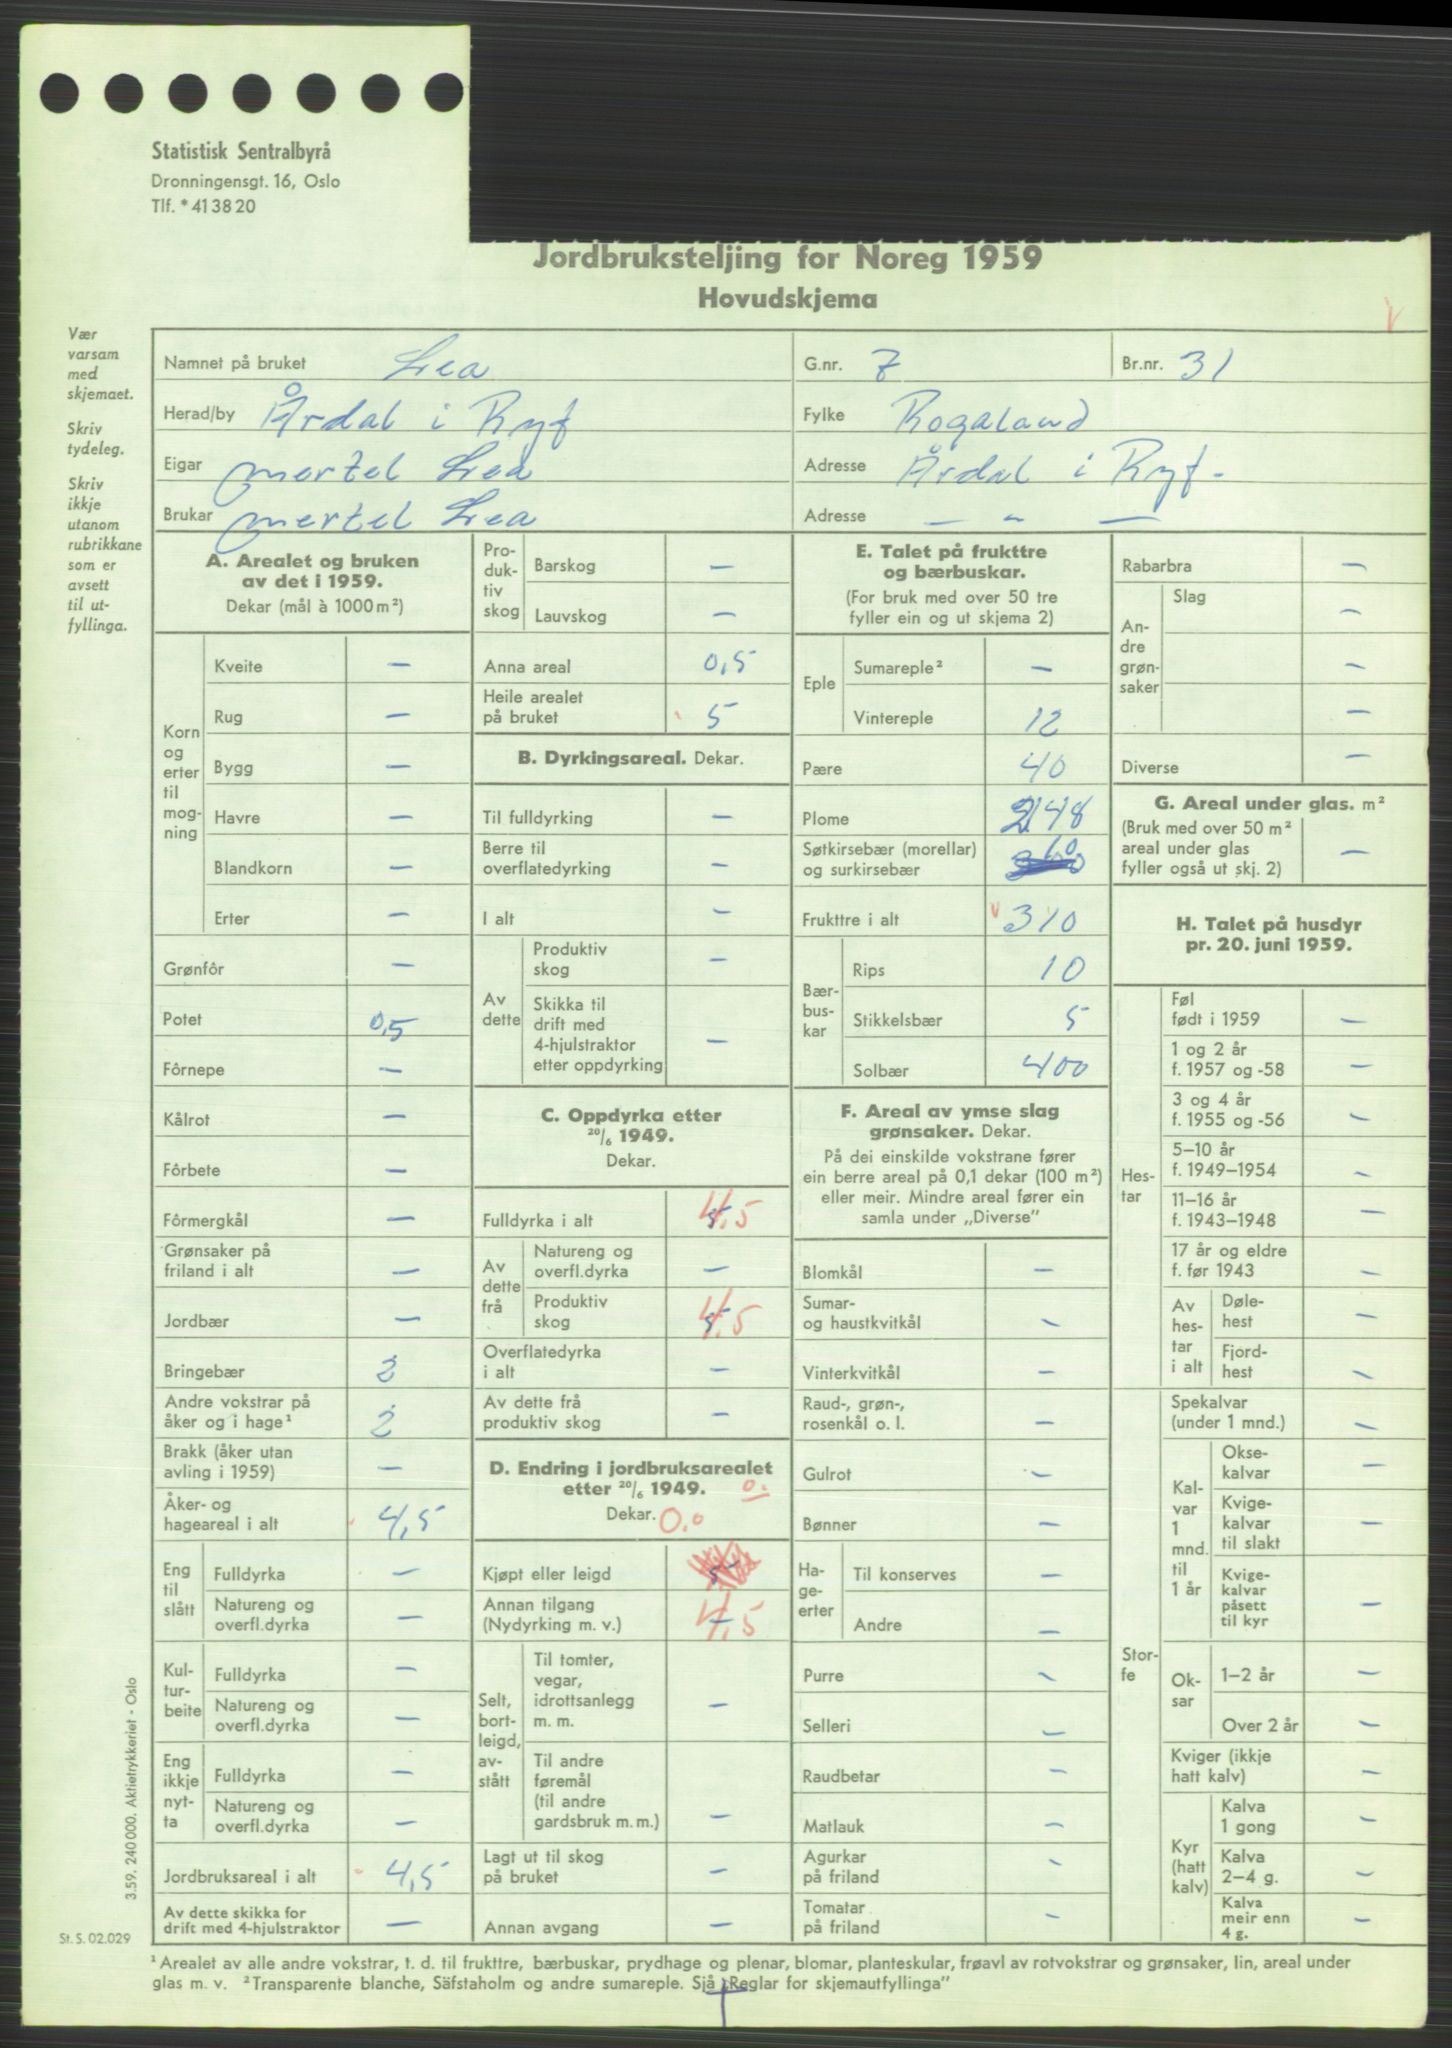 Statistisk Sentralbyrå
Dronningensgt. 16, Oslo
Tlf. * 41 38 20
Jordbruksteljing for Noreg 1959
Hovudskjema
Vær
varsam
med
skjemaet.
Skriv
tydeleg.
Skriv
ikkje
utanom
rubrikkane
som er
avsett
til ut-
fyllinga.
Namnet på bruket Lea G.nr. 7 Br.nr. 31
Herad/by Årdal i Ryf Fylke Rogaland
Eigar mertel Lea Adresse Årdal i Ryf.
Brukar mertel Lea Adresse — " —
A. Arealet og bruken
av det i 1959.
Dekar (mål à 1000 m²)
Korn
og
erter
til
mog-
ning
Kveite —
Rug —
Bygg —
Havre —
Blandkorn —
Erter —
Grønfôr —
Potet 0,5
Fôrnepe —
Kålrot —
Fôrbete —
Fôrmergkål —
Grønsaker på
friland i alt —
Jordbær —
Bringebær 2
Andre vokstrar på
åker og i hage¹ 2
Brakk (åker utan
avling i 1959) —
Åker- og
hageareal i alt 4,5
Eng
til
slått
Fulldyrka —
Natureng og
overfl.dyrka —
Kul-
tur-
beite
Fulldyrka —
Natureng og
overfl.dyrka —
Eng
ikkje
nyt-
ta
Fulldyrka —
Natureng og
overfl.dyrka —
Jordbruksareal i alt 4,5
Av dette skikka for
drift med 4-hjulstraktor —
Pro-
duk-
tiv
skog
Barskog —
Lauvskog —
Anna areal 0,5
Heile arealet
på bruket 5
B. Dyrkingsareal. Dekar.
Til fulldyrking —
Berre til
overflatedyrking —
I alt —
Av
dette
Produktiv
skog —
Skikka til
drift med
4-hjulstraktor
etter oppdyrking —
C. Oppdyrka etter
20/6 1949.
Dekar.
Fulldyrka i alt 4,5
Av
dette
frå
Natureng og
overfl.dyrka —
Produktiv
skog 4,5
Overflatedyrka
i alt —
Av dette frå
produktiv skog —
D. Endring i jordbruksarealet
etter 20/6 1949. 0.
Dekar. 0.0
Kjøpt eller leigd 5
Annan tilgang
(Nydyrking m. v.) 4,5
Selt,
bort-
leigd,
av-
stått
Til tomter,
vegar,
idrottsanlegg
m. m. —
Til andre
føremål
(til andre
gardsbruk m. m.) —
Lagt ut til skog
på bruket —
Annan avgang —
E. Talet på frukttre
og bærbuskar.
(For bruk med over 50 tre
fyller ein og ut skjema 2)
Eple
Sumareple² —
Vintereple 12
Pære 40
Plome 248
Søtkirsebær (morellar)
og surkirsebær
Frukttre i alt 310
Bær-
bus-
kar
Rips 10
Stikkelsbær 5
Solbær 400
F. Areal av ymse slag
grønsaker. Dekar.
På dei einskilde vokstrane fører
ein berre areal på 0,1 dekar (100 m²)
eller meir. Mindre areal fører ein
samla under „Diverse”
Blomkål —
Sumar-
og haustkvitkål —
Vinterkvitkål —
Raud-, grøn-,
rosenkål o. l. —
Gulrot —
Bønner —
Ha-
ge-
erter
Til konserves —
Andre —
Purre —
Selleri —
Raudbetar —
Matlauk —
Agurkar
på friland —
Tomatar
på friland —
Rabarbra —
An-
dre
grøn-
saker
Slag
—
—
—
Diverse —
G. Areal under glas. m²
(Bruk med over 50 m²
areal under glas
fyller også ut skj. 2) —
H. Talet på husdyr
pr. 20. juni 1959.
Hes-
tar
Føl
født i 1959 —
1 og 2 år
f. 1957 og -58 —
3 og 4 år
f. 1955 og -56 —
5–10 år
f. 1949–1954 —
11–16 år
f. 1943–1948 —
17 år og eldre
f. før 1943 —
Av
hes-
tar
i alt
Døle-
hest —
Fjord-
hest —
Stor-
fe
Spekalvar
(under 1 mnd.) —
Kal-
var
1
mnd.
til
1 år
Okse-
kalvar —
Kvige-
kalvar
til slakt —
Kvige-
kalvar
påsett
til kyr —
Ok-
sar
1–2 år —
Over 2 år —
Kviger (ikkje
hatt kalv) —
Kyr
(hatt
kalv)
Kalva
1 gong —
Kalva
2–4 g. —
Kalva
meir enn
4 g. —
3.59. 240 000. Aktietrykkeriet - Oslo
St. S. 02.029
¹ Arealet av alle andre vokstrar, t. d. til frukttre, bærbuskar, prydhage og plenar, blomar, planteskular, frøavl av rotvokstrar og grønsaker, lin, areal under
glas m. v. ² Transparente blanche, Säfstaholm og andre sumareple. Sjå „Reglar for skjemautfyllinga”